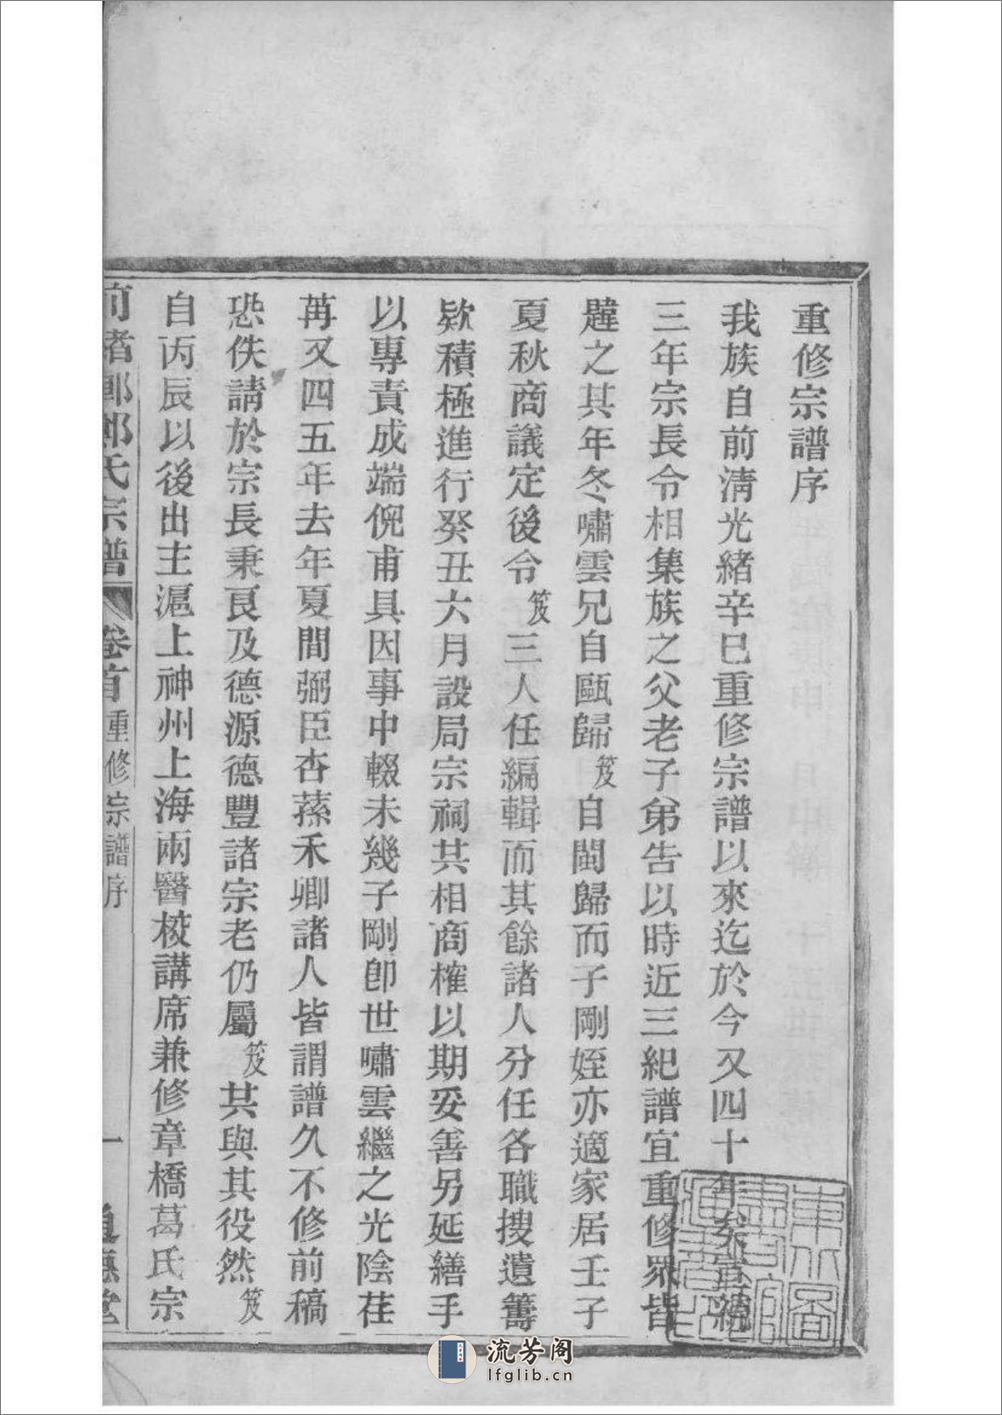 重修宗譜序
我族自前淸光緒辛巳重修宗譜以來迄於今又四十年矣宣統
三年宗長令相集族之父老子弟告以時近三紀譜宜重修眾皆
韙之其年冬嘯雲兄自甌歸笈自閩歸而子剛姪亦適家居壬子
夏秋商議定後令笈三人任編輯而其餘諸人分任各職搜遺籌
欵積極進行癸丑六月設局宗祠共相商榷以期妥善另延繕手
以專責成端倪甫具因事中輟未幾子剛卽世嘯雲繼之光陰荏
苒又四五年去年夏間弼臣杏蓀禾卿諸人皆謂譜久不修前稿
恐佚請於宗長秉良及德源德豐諸宗老仍屬笈共與其役然笈
自丙辰以後出主滬上神州上海兩醫校講席兼修章橋葛氏宗
前渚鄭郎氏宗譜 卷首 重修宗譜序 一
流芳阁
lfglib.cn